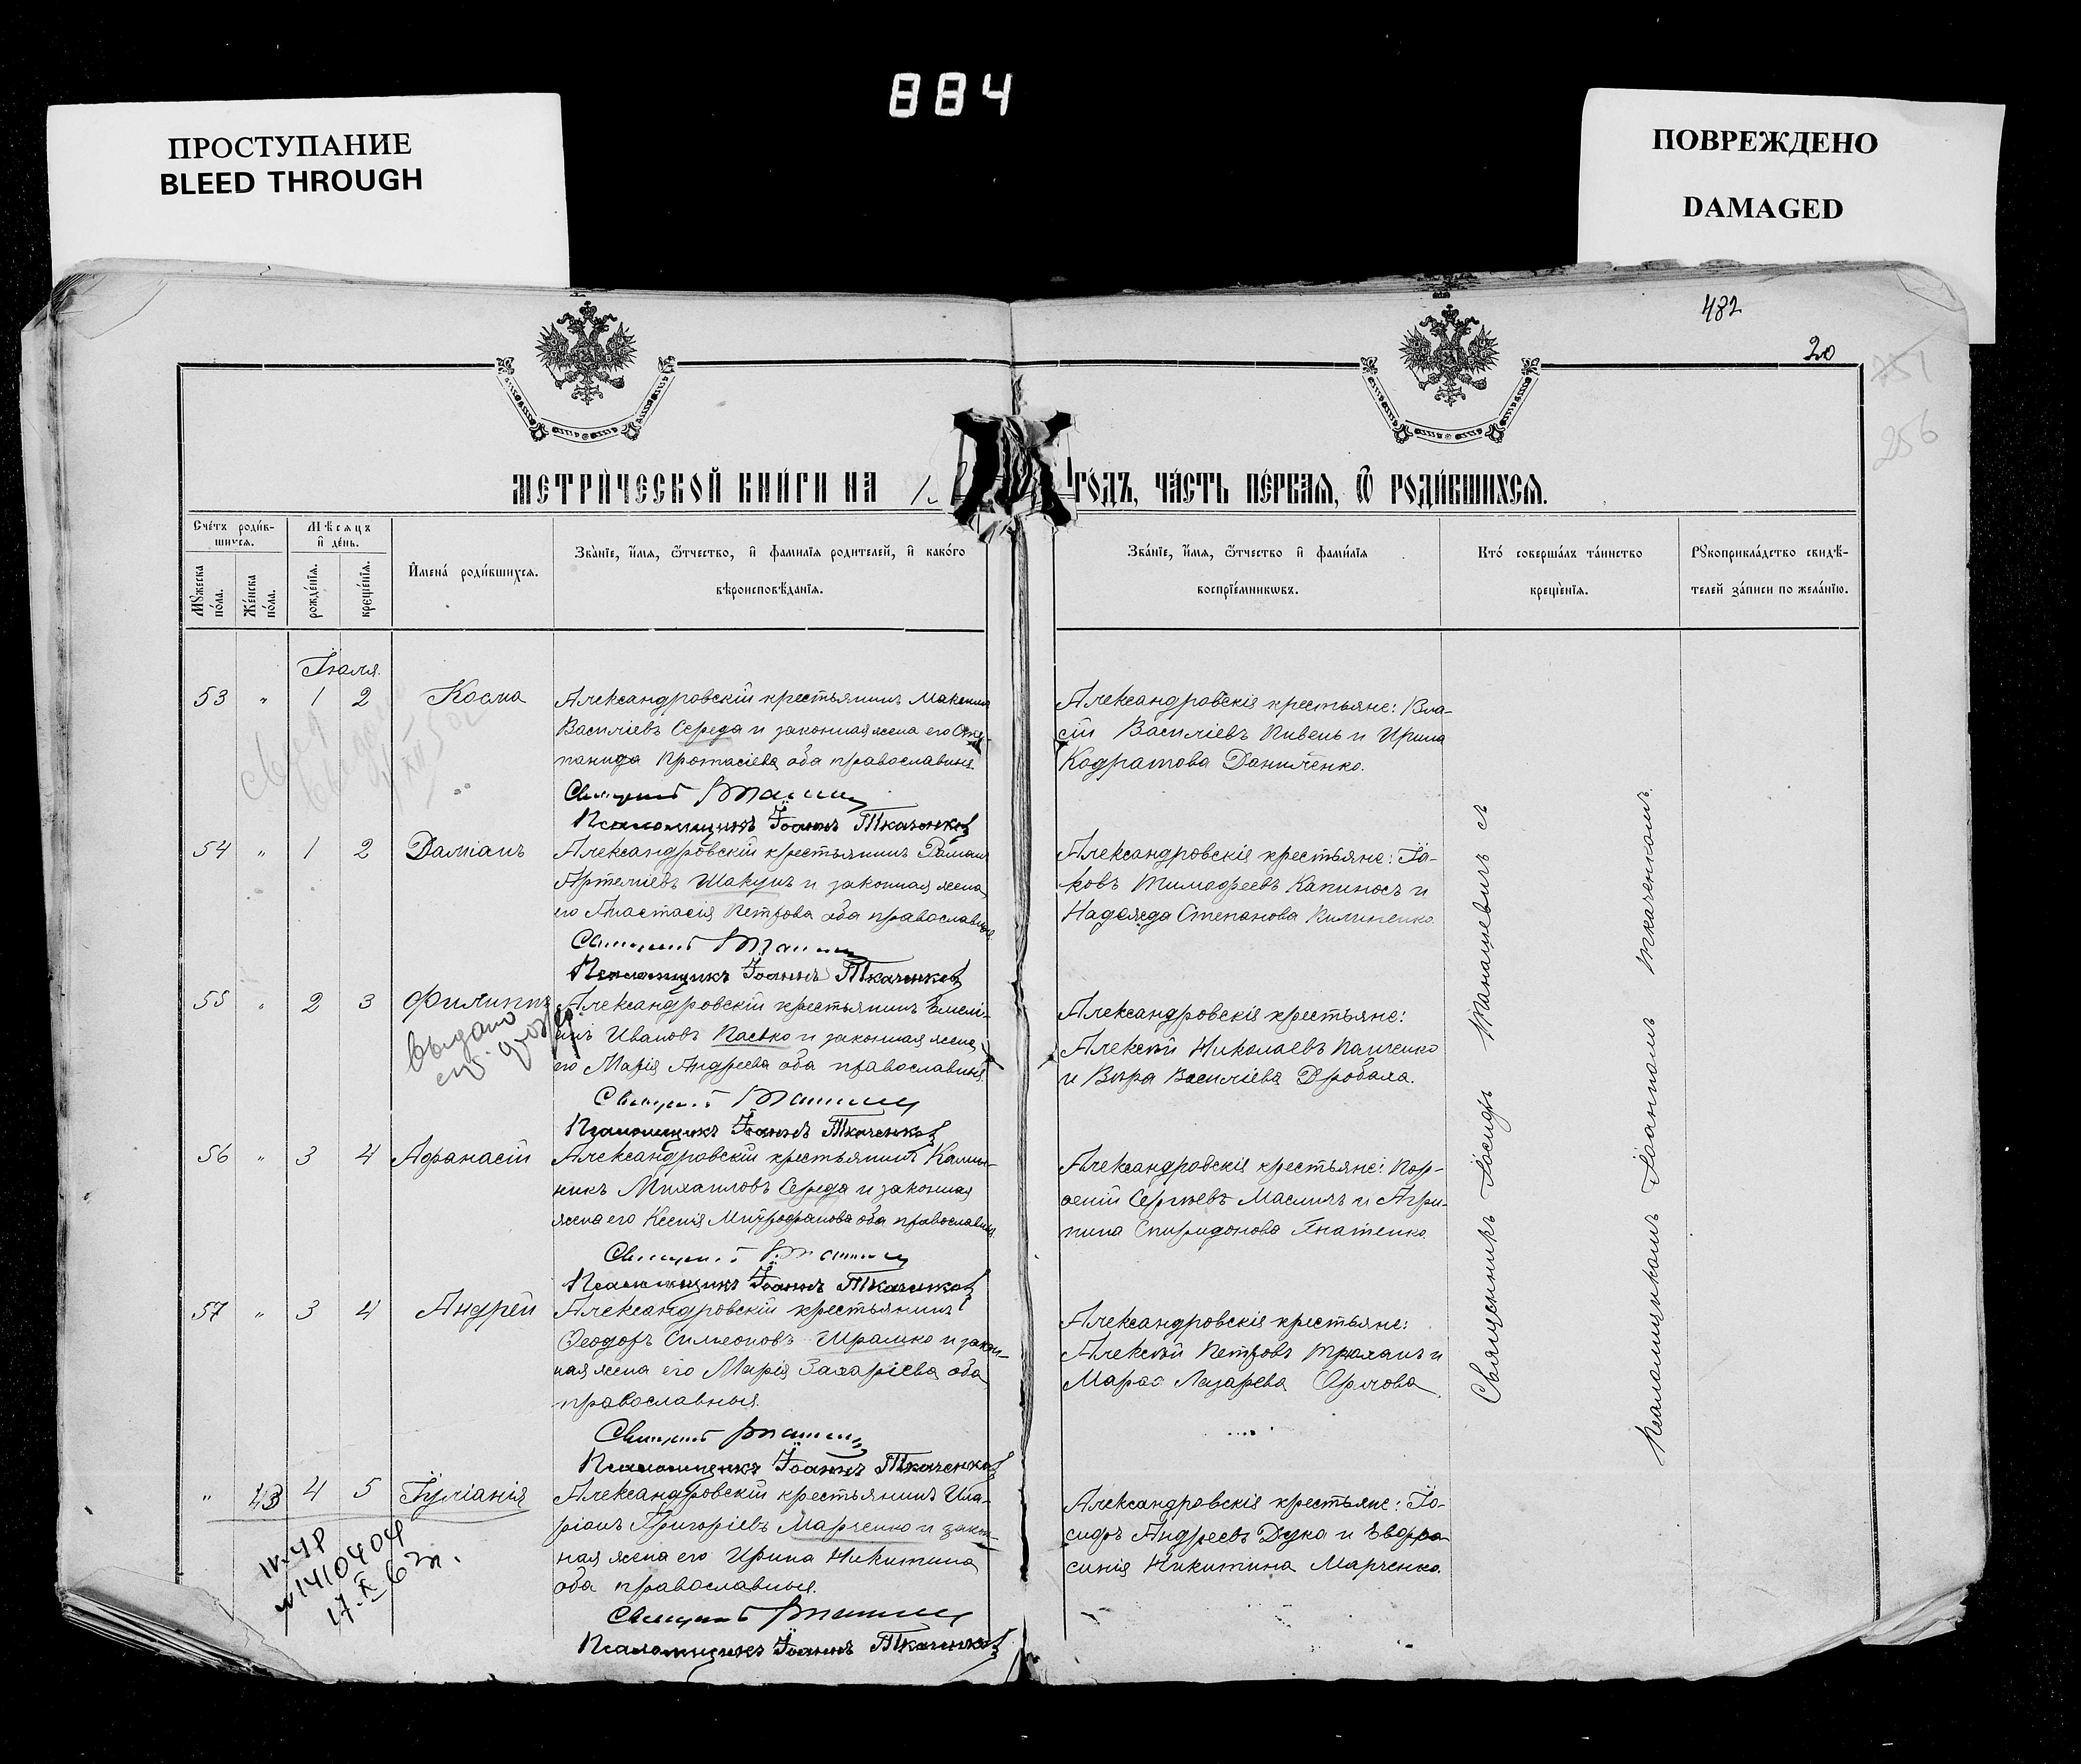 884
ПРОСТУПАНИЕ
BLEED THROUGH
ПОВРЕЖДЕНО
DAMAGED
482
20
256
МЕТРИ́ЧЕСКОЙ КНИ́ГИ НА 1
ГО́ДЪ, ЧА́СТЬ ПЕ́РВАЯ, Ѿ РОДИ́ВШИХСЯ.
Сче́тъ роди́в-
шихся.
Мѣ́сяцъ
и де́нь.
Мꙋ́жеска по́ла.
Же́нска по́ла.
рожде́нїя.
креще́нїя.
Имена́ роди́вшихся.
Зва́нїе, и́мя, ѻ́тчество, и фами́лїя родителей, и како́го
вѣроисповѣ́данїя.
Зва́нїе, и́мя, ѻ́тчество и фами́лїя
воспрїе́мникѡвъ.
Кто́ соверша́лъ та́инство
креще́нїя.
Рꙋкоприкла́дство свидѣ́-
телей за́писи по жела́нїю.
Іюля.
53 " 1 2 Косма
Александровскій крестьянинъ Максимъ
Василіевъ Середа и законная жена его Сте-
панида Протасіева оба православные.
Священникъ
Псаломщикъ Іоаннъ Ткаченковъ
Александровскіе крестьяне: Вла-
сій Василіевъ Пивень и Ирина
Кодратова Даниленко.
54 " 1 2 Даміанъ
Александровскій крестьянинъ Романъ
Артеміевъ Шакунъ и законная жена
его Анастасія Петрова оба православные
Священникъ
Псаломщикъ Іоаннъ Ткаченковъ
Александровскіе крестьяне: Іа-
ковъ Тимофеевъ Капиносъ и
Надежда Степанова Пилипенко.
55 " 2 3 Филиппъ
выдано
Александровскій крестьянинъ Емелі-
анъ Ивановъ Пасько и законная жена
его Марія Андреева оба православные.
Священникъ
Псаломщикъ Іоаннъ Ткаченковъ
Александровскіе крестьяне:
Алексѣй Николаевъ Панченко
и Вѣра Василіева Дробаха.
56 " 3 4 Афанасій
Александровскій крестьянинъ Калин-
никъ Михаиловъ Середа и законная
жена его Ксенія Митрофанова оба православные.
Священникъ
Псаломщикъ Іоаннъ Ткаченковъ
Александровскіе крестьяне: Пор-
фирій Сергѣевъ Маслихъ и Агри-
пина Спиридонова Гнатенко.
57 " 3 4 Андрей
Александровскій крестьянинъ
Ѳеодоръ Симеоновъ Шрамко и закон-
ная жена его Марія Захаріева оба
православные.
Священникъ
Псаломщикъ Іоаннъ Ткаченковъ
Александровскіе крестьяне:
Алексѣй Петровъ Трюханъ и
Марфа Лазарева Орлова.
" 43 4 5 Іуліанія
Александровскій крестьянинъ Ила-
ріонъ Григоріевъ Марченко и закон-
ная жена его Ирина Никитина
оба православные.
Священникъ
Псаломщикъ Іоаннъ Ткаченковъ
Александровскіе крестьяне: Іо-
сифъ Андреевъ Дука и Евфро-
синія Никитина Марченко.
Священникъ Іосифъ Манацевичъ съ
Псаломщикомъ Іоанномъ Ткаченкомъ.